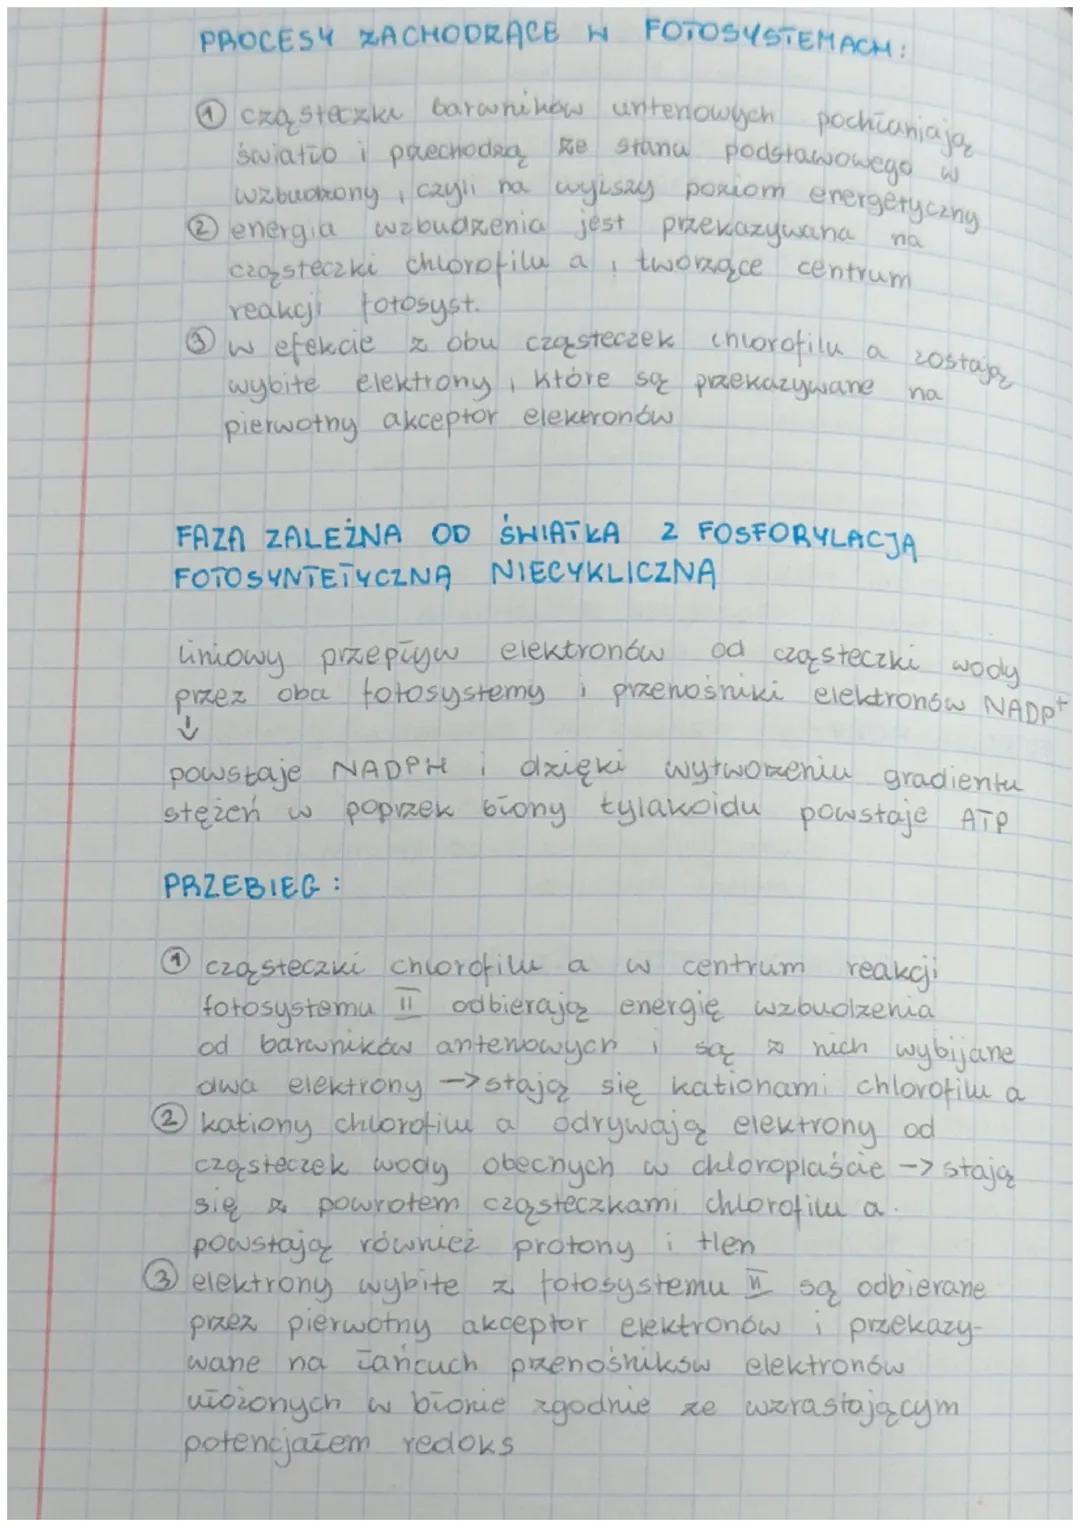 PROCESY ZACHODZĄCE W FOTOSYSTEMACH:
① cząsteczki barwników antenowych pochłaniają
światło i przechodzą ze stanu podstawowego w
wzbudzony, czyli na wyższy poziom energetyczny
② energia wzbudzenia jest przekazywana na
cząsteczki chlorofilu a, tworzące centrum
reakcji fotosyst.
③ w efekcie z obu cząsteczek chlorofilu a zostają
wybite elektrony, które są przekazywane na
pierwotny akceptor elektronów
FAZA ZALEŻNA OD ŚWIATŁA Z FOSFORYLACJĄ
FOTOSYNTETYCZNĄ NIECYKLICZNĄ
liniowy przepływ elektronów od cząsteczki wody
przez oba fotosystemy i przenośniki elektronów NADP⁺
↓
powstaje NADPH i dzięki wytworzeniu gradientu
stężeń w poprzek błony tylakoidu powstaje ATP
PRZEBIEG:
① cząsteczki chlorofilu a w centrum reakcji
fotosystemu II odbierają energię wzbudzenia
od barwników antenowych i są z nich wybijane
dwa elektrony → stają się kationami chlorofilu a
② kationy chlorofilu a odrywają elektrony od
cząsteczek wody obecnych w chloroplaście → stają
się z powrotem cząsteczkami chlorofilu a.
powstają również protony i tlen
③ elektrony wybite z fotosystemu II są odbierane
przez pierwotny akceptor elektronów i przekazy-
wane na łańcuch przenośników elektronów
ułożonych w błonie zgodnie ze wzrastającym
potencjałem redoks